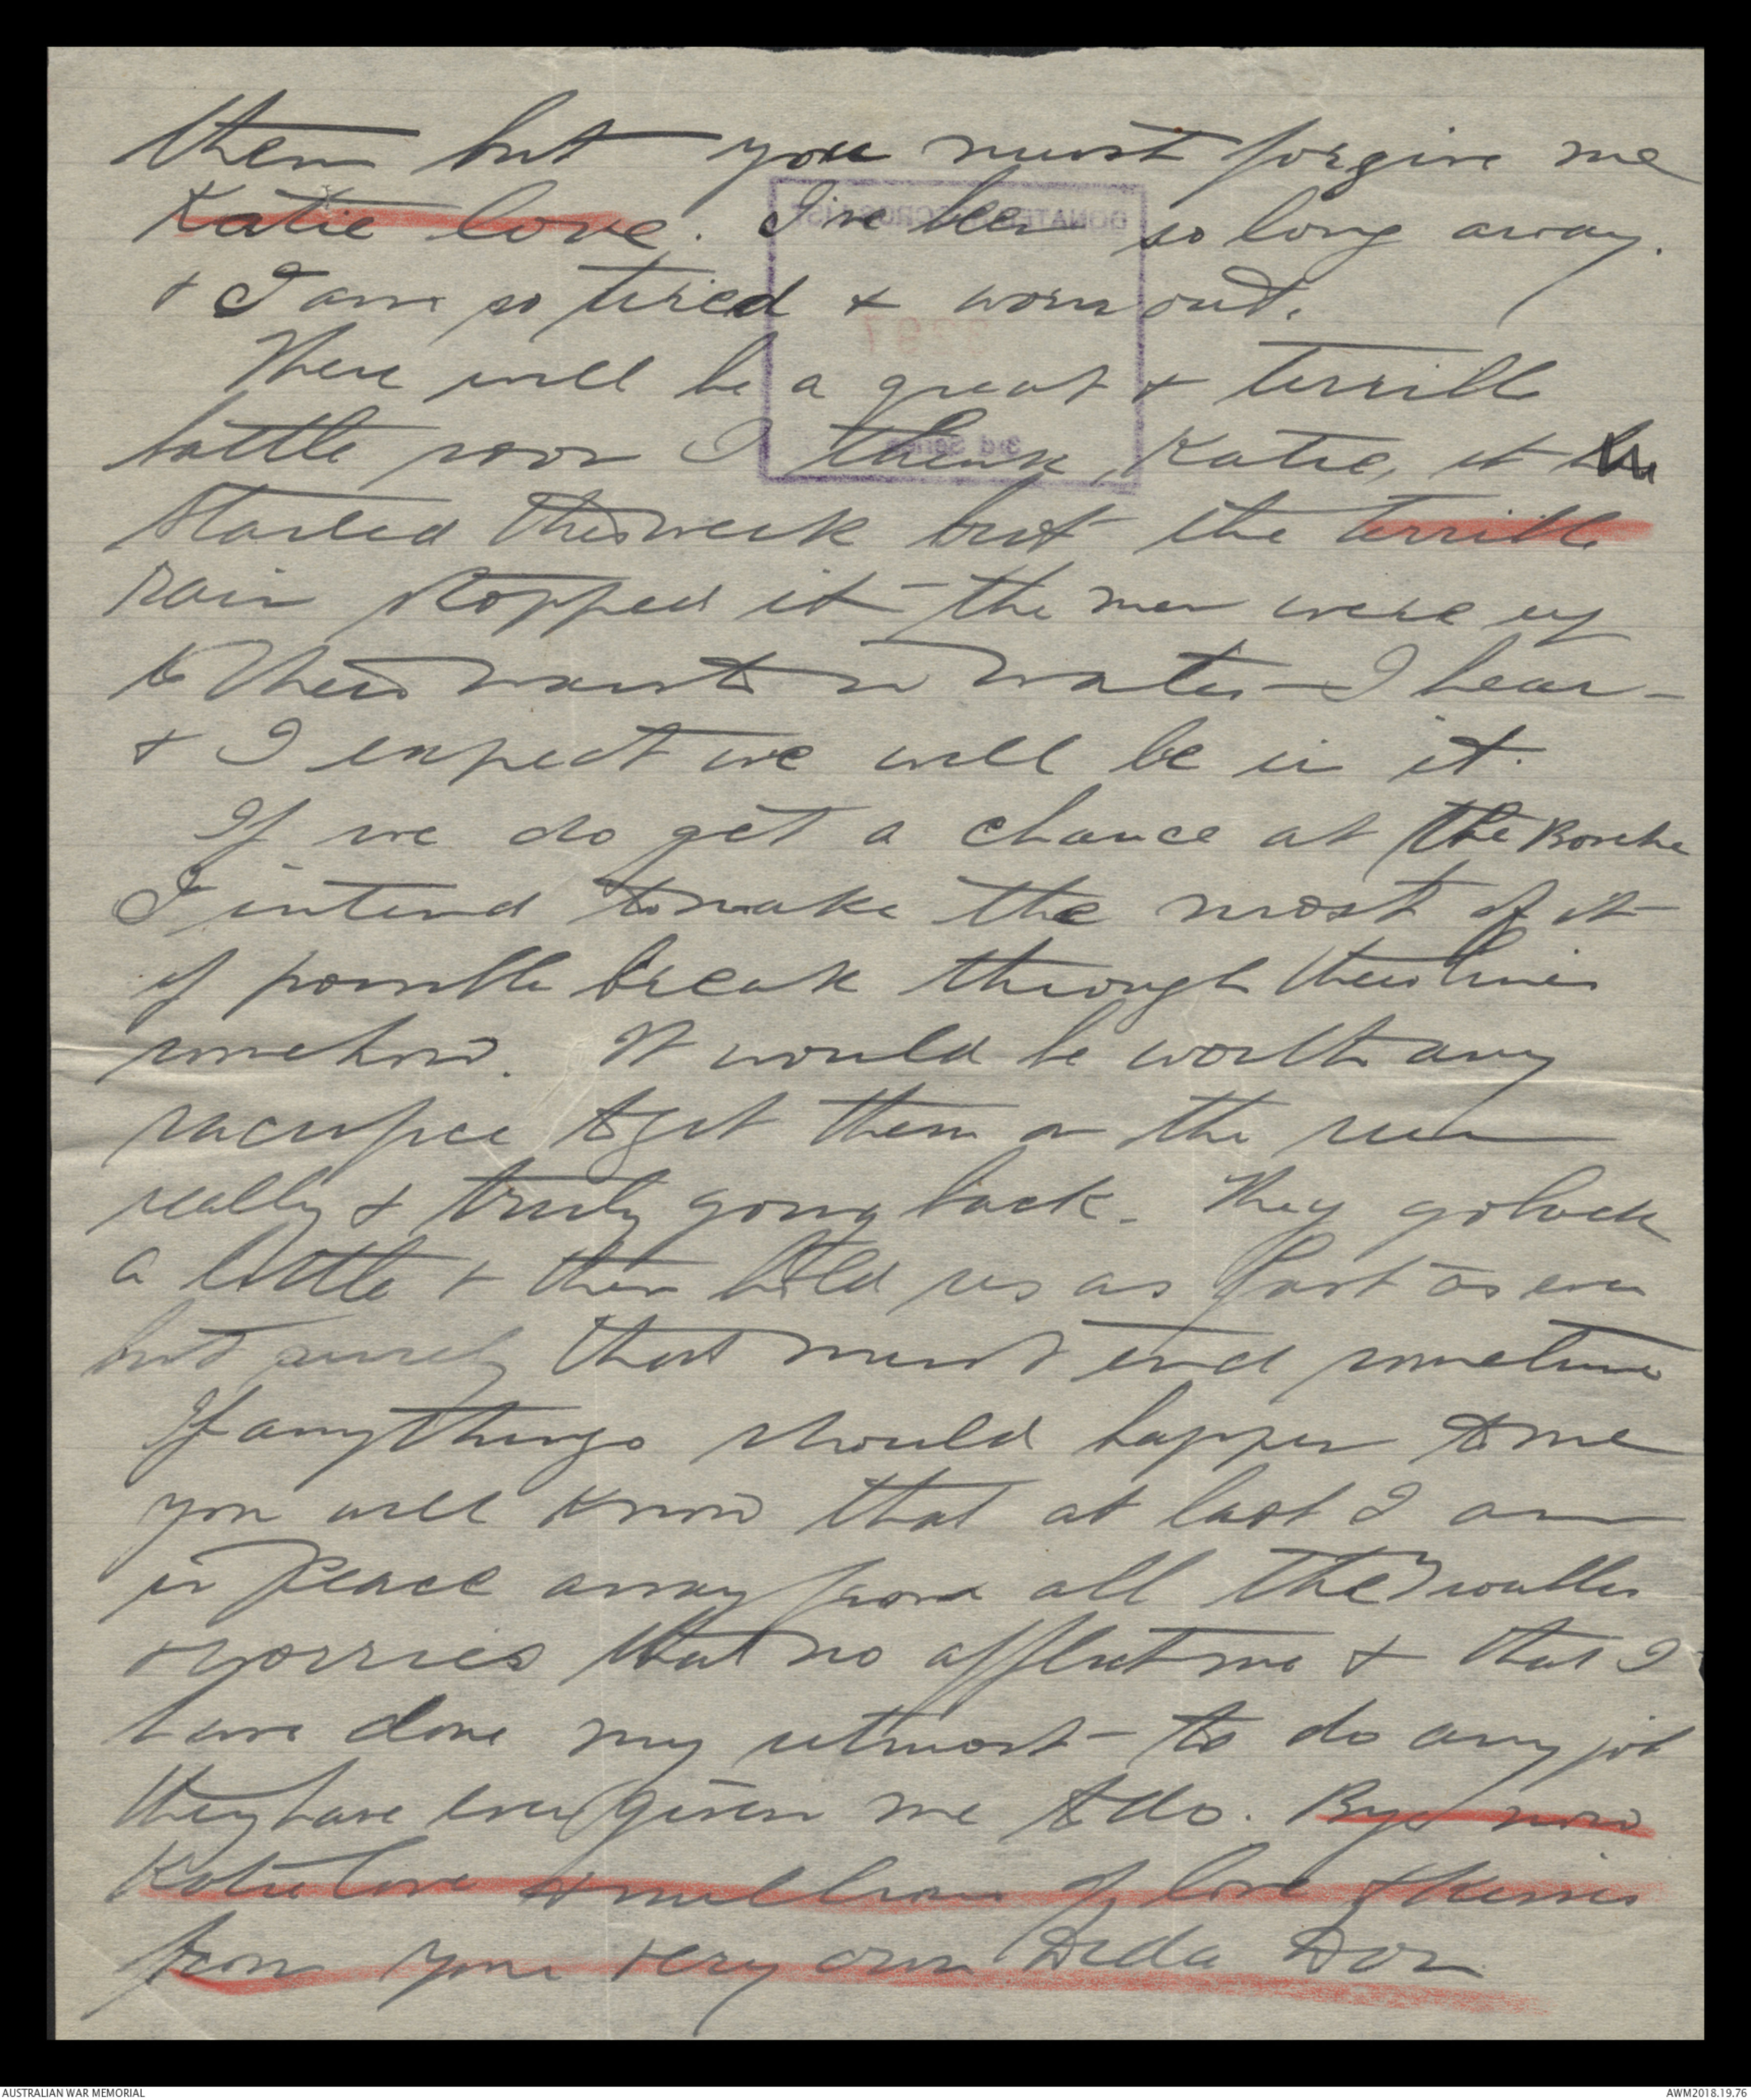 them but you must forgive me
Katie love. I've been so long away.
& I am so tired & worn out.
There will be a great & terrible
battle soon I think, Katie, it
started this week but the terrible
rain stopped it - the men were up
to their waists in water - I hear -
& I expect we will be in it.
If we do get a chance at the Bosche
I intend to make the most of it
if possible break through their lines
somehow. It would be worth any
sacrifice to get them on the run
really & truly going back. They go back
a little & then hold us as fast as ever
but surely that must end sometime
If anythings should happen to me
you will know that at last I am
in peace away from all the troubles
& worries that so afflict me & that I
have done my utmost - to do any job
they have ever given me to do. Bye now
Katie love & millions of love & kisses
from your very own Dida Don
DONATED RECORDS LIST
3rd Series
AUSTRALIAN WAR MEMORIAL
AWM2018.19.76